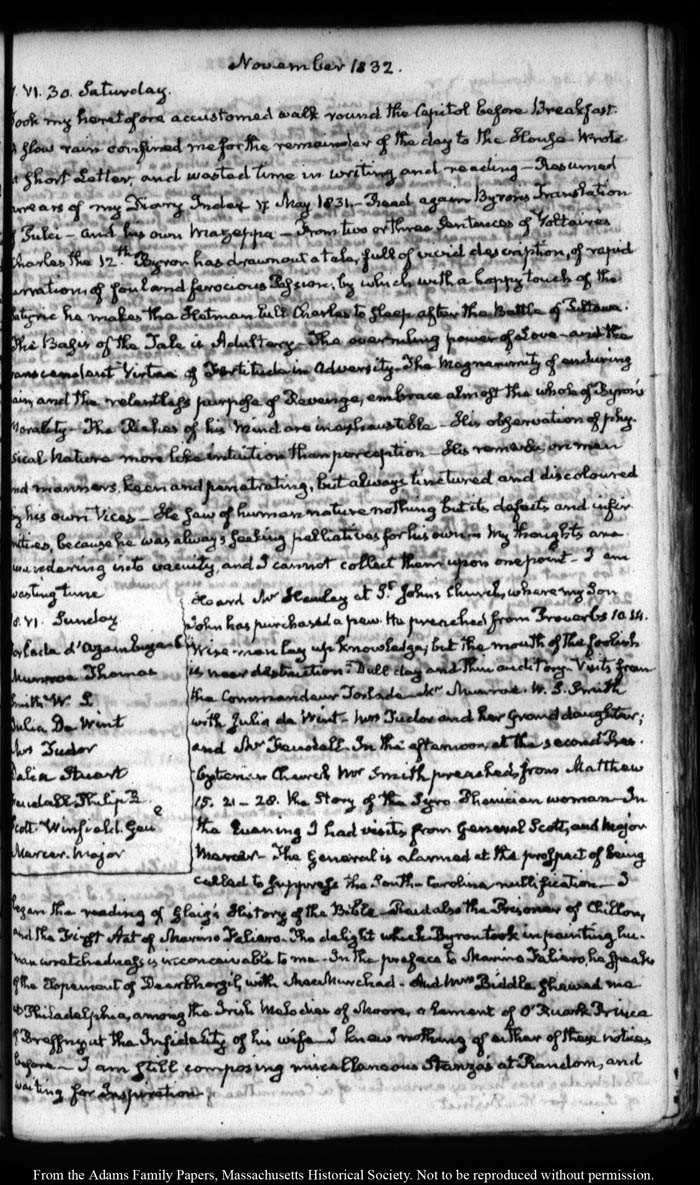 November 1832.
VI. 30. Saturday.
ook my heretofore accustomed walk round the Capitol before Breakfast.
slow rain confined me for the remainder of the day to the House. Wrote
short Letter, and wasted time in writing and reading — Resumed
rears of my Diary Index of May 1831. — Read again Byron's Translation
Pulci — and his own Mazeppa — From two or three Sentences of Voltaires
Charles the 12th. Byron has drawn out a tale, full of vivid description, of rapid
arration, of foul and ferocious Passion, by which with a happy touch of the
atyric he makes the Hetman lull Charles to sleep after the Battle of Pultawa.
The Basis of the Tale is Adultery — The overruling power of Love — and the
ranscendent Virtue of Fortitude in Adversity — The Magnanimity of enduring
ain, and the relentless purpose of Revenge, embrace almost the whole of Byron's
Morality — The Riches of his Mind are inexhaustible — His observation of phy-
sical Nature more like intuition than perception — His remarks on men
nd manners, keen and penetrating, but always tinctured and discoloured
by his own Vices — He saw of human nature nothing but its defects and infir
mities, because he was always seeking palliatives for his own — My thoughts are
wandering into vacuity, and I cannot collect them upon one point — I am
wasting time
VI. Sunday
Torlade d'Azambuga
Munroe Thomas
Smith W. S.
Julia De Wint
Mrs Tudor
Delia Stuart
Fendall Philip R.
Scott. Winfield. Gen
Mercer. Major
Heard Mr Hawley at St. Johns Church, where my Son
John has purchased a pew. He preached from Proverbs 10. 14.
Wise men lay up knowledge; but the mouth of the foolish
is near destruction. Dull day and thin auditory. Visits from
the Commandeur Torlade — Mr Munroe. W. S. Smith
with Julia de Wint — Mrs Tudor and her Grand daughter;
and Mr Fendall. In the afternoon, at the second Pres-
byterian Church Mr Smith preached, from Matthew
15. 21–28. the Story of the Syro Phenician woman — In
the Evening I had visits from General Scott, and Major
Mercer — The General is alarmed at the prospect of being
called to suppress the South-Carolina nullification — I
began the reading of Gleig's History of the Bible — Read also the Prisoner of Chillon,
and the First Act of Marino Faliero. The delight which Byron took in painting hu-
man wretchedness is inconceivable to me — In the preface to Marino Faliero, he speaks
of the Elopement of Dearbhorgil, with MacMurchad — And Mrs Biddle shewed me
at Philadelphia, among the Irish Melodies of Moore, a lament of O'Ruark Prince
of Breffny at the Infidelity of his wife — I knew nothing of either of these notices
before — I am still composing miscellaneous Stanza's at Random, and
waiting for Inspiration
From the Adams Family Papers, Massachusetts Historical Society. Not to be reproduced without permission.